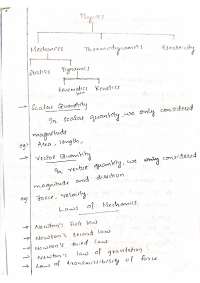 Physics
Mechanics Thermodynamics Electricity
Statics Dynamics
Kinematics Kinetics
→ Scalar Quantity
In scalar quantity we only considered
magnitude
eg: Area, length,
→ Vector Quantity
In vector quantity, we only considered
magnitude and direction
eg: Force, velocity.
Laws of Mechanics
→ Newton's first law
→ Newton's second law
→ Newton's third law
→ Newton's law of gravitation
→ Law of transmissibility of force